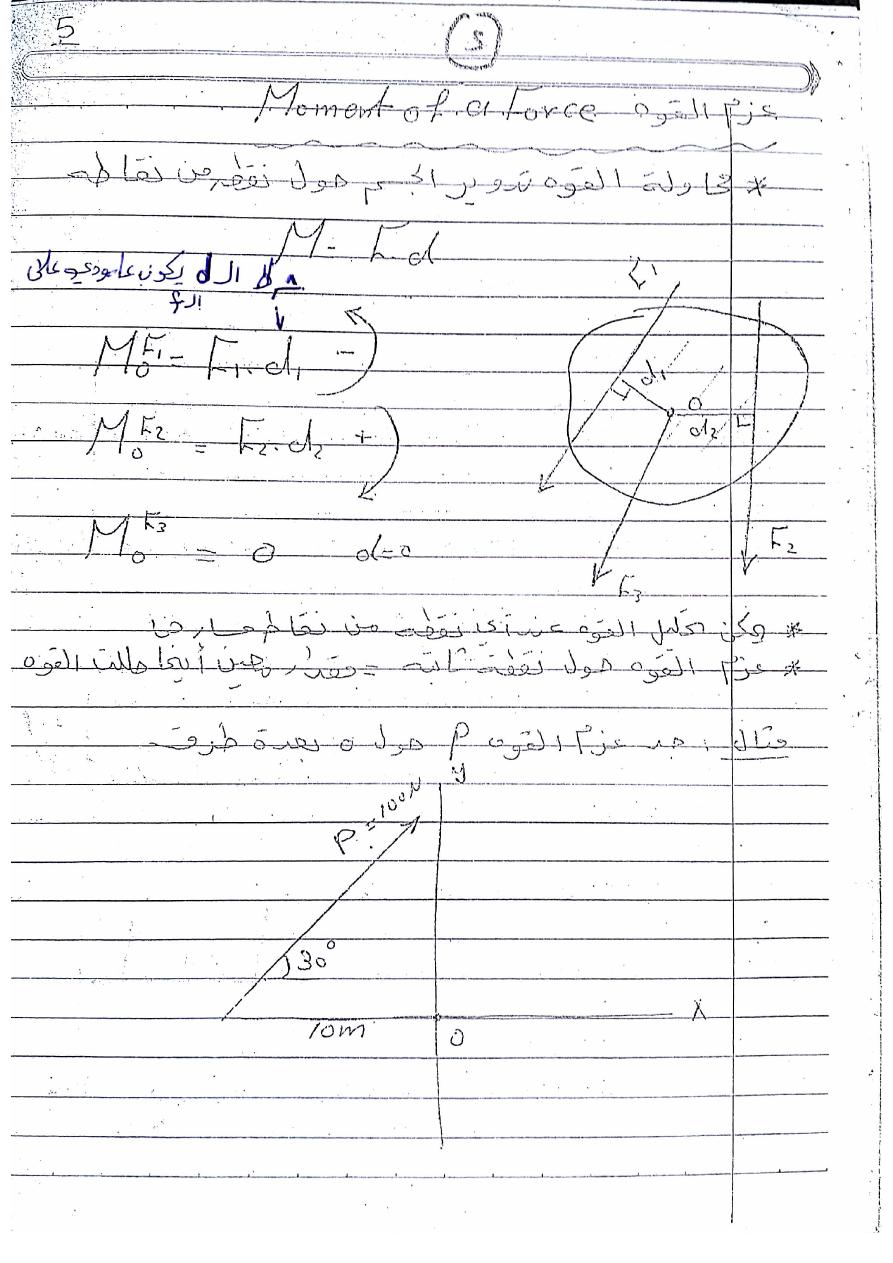 5
5
Moment of a Force عزم القوه
* محاولة القوه تدوير الجسم حول نقطه من نقاطه
M = Fd
ال d يكون عامودي على
ال f
F1
M_O^F1 = F1.d1 -
d1
M_O^F2 = F2.d2 +
O
d2
F2
M_O^F3 = 0 d=0
F3
* يمكن تحليل القوه عند أي نقطه من نقاط مسارها
* عزم القوه حول نقطة ثابته = مقدار معين أينما طلت القوه
مثال : جد عزم القوه P حول o بعدة طرق
y
P = 100N
30°
10m
O
X